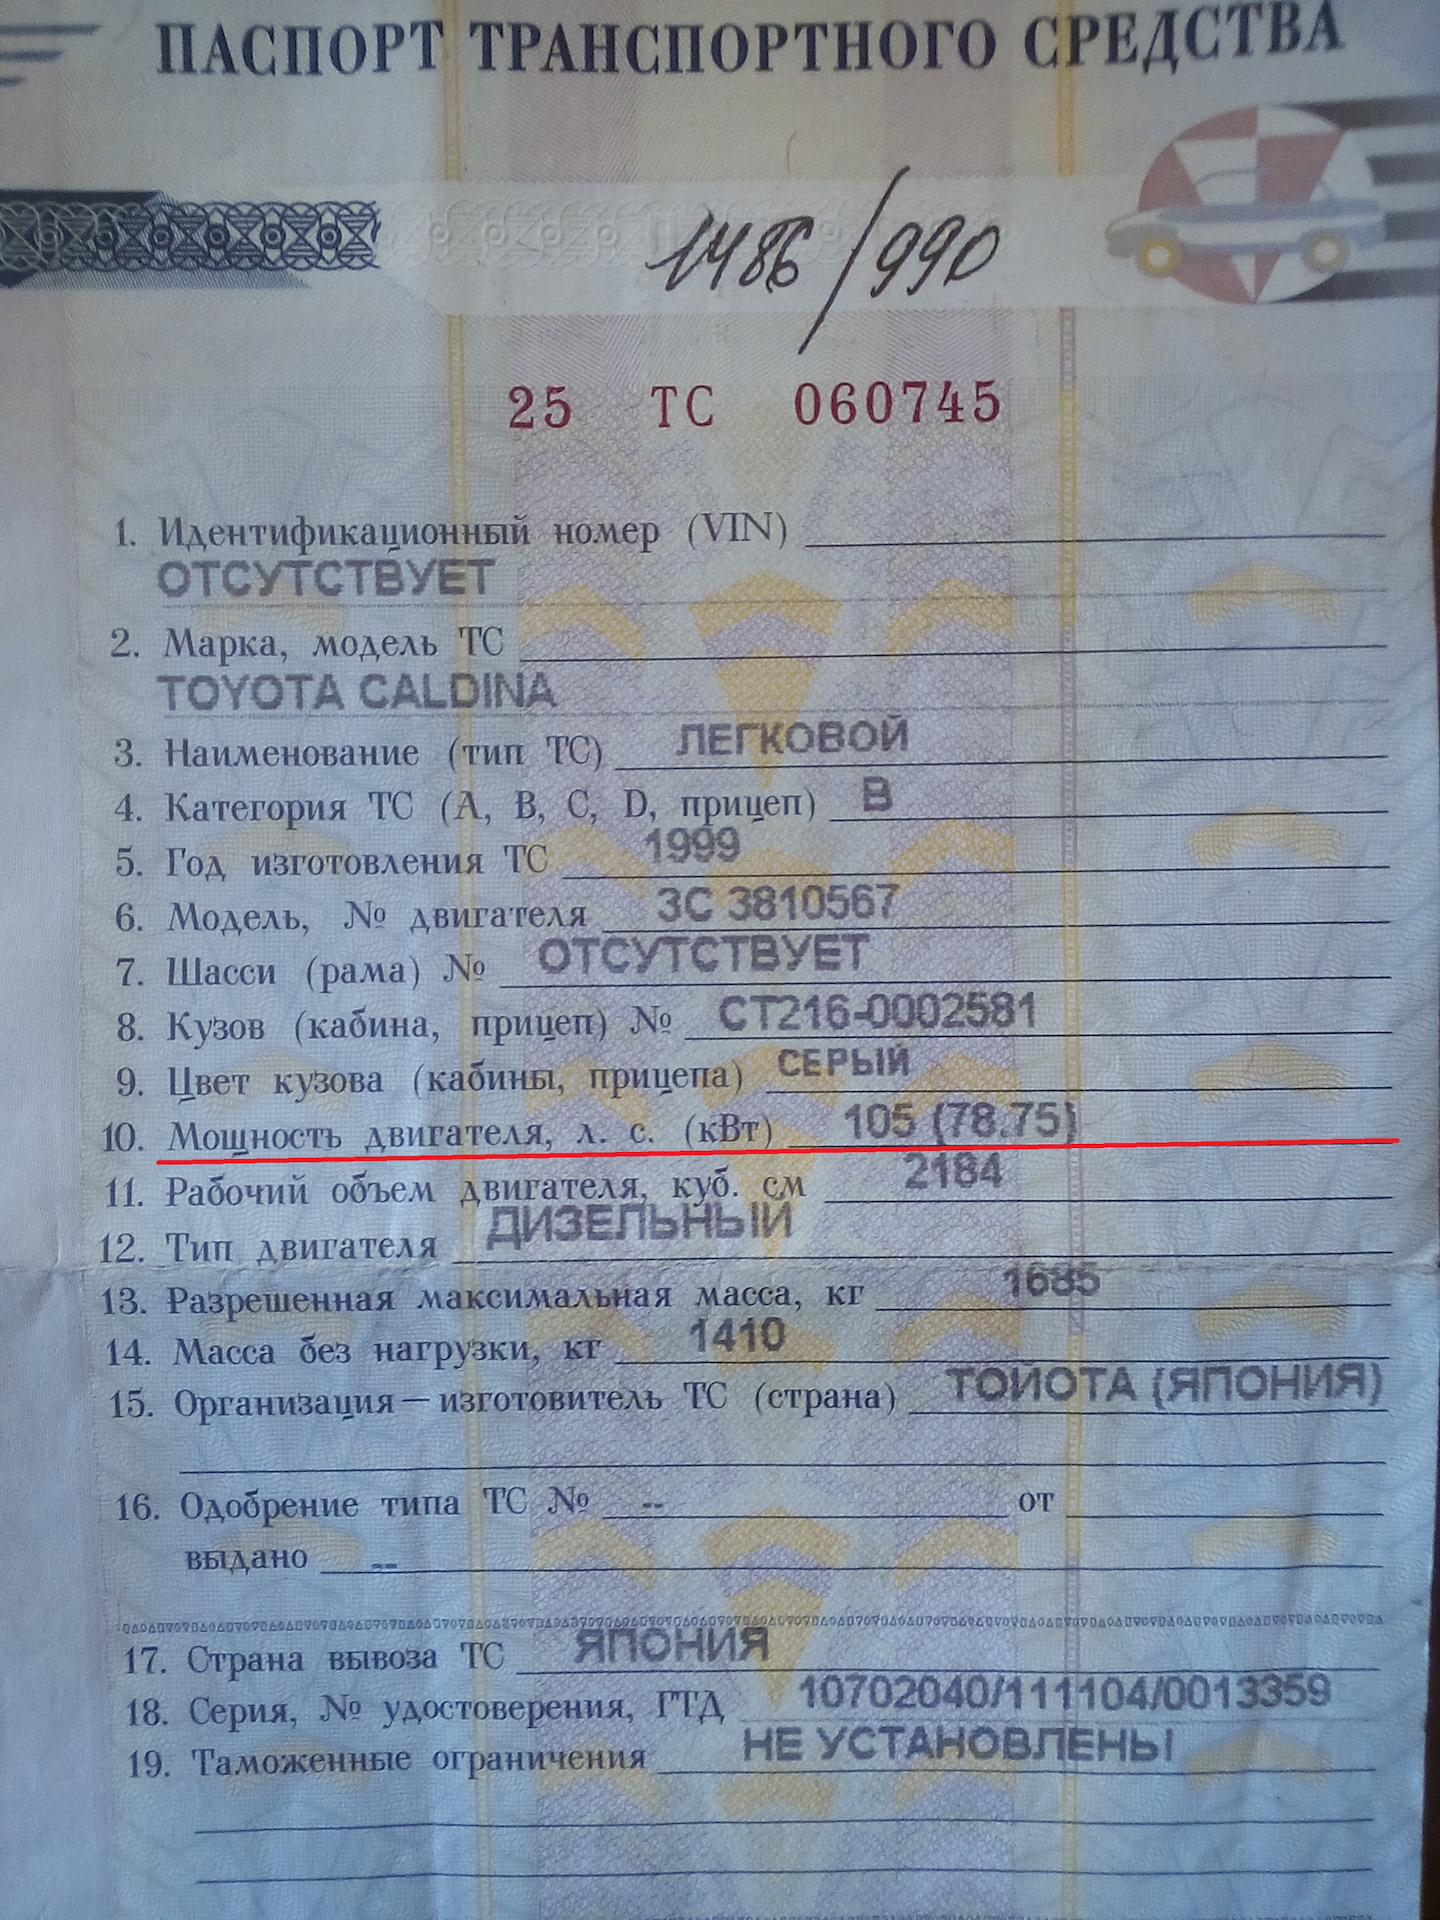 ПАСПОРТ ТРАНСПОРТНОГО СРЕДСТВА
1486/990
25 ТС 060745
1. Идентификационный номер (VIN)
ОТСУТСТВУЕТ
2. Марка, модель ТС
TOYOTA CALDINA
3. Наименование (тип ТС) ЛЕГКОВОЙ
4. Категория ТС (А, В, С, D, прицеп) В
5. Год изготовления ТС 1999
6. Модель, № двигателя 3С 3810567
7. Шасси (рама) № ОТСУТСТВУЕТ
8. Кузов (кабина, прицеп) № СТ216-0002581
9. Цвет кузова (кабины, прицепа) СЕРЫЙ
10. Мощность двигателя, л. с. (кВт) 105 (78.75)
11. Рабочий объем двигателя, куб. см 2184
12. Тип двигателя ДИЗЕЛЬНЫЙ
13. Разрешенная максимальная масса, кг 1685
14. Масса без нагрузки, кг 1410
15. Организация – изготовитель ТС (страна) ТОЙОТА (ЯПОНИЯ)
16. Одобрение типа ТС № -- от
выдано --
17. Страна вывоза ТС ЯПОНИЯ
18. Серия, № удостоверения, ГТД 10702040/111104/0013359
19. Таможенные ограничения НЕ УСТАНОВЛЕНЫ